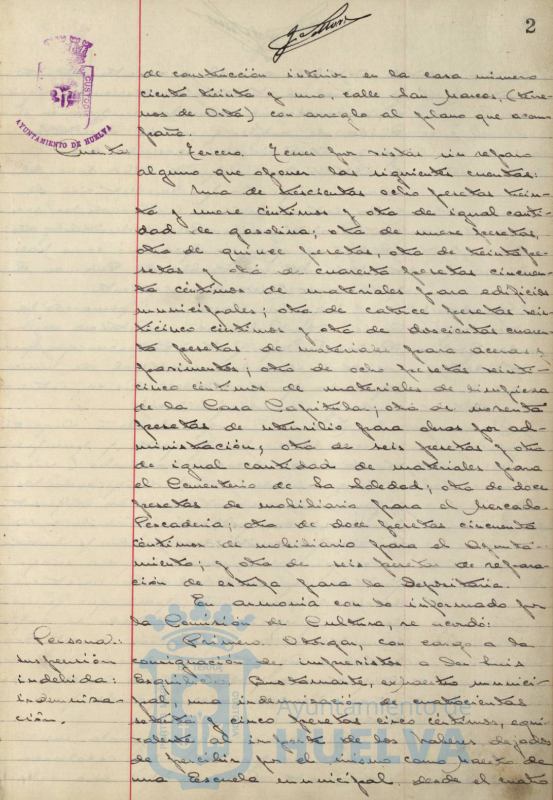 2
CUSTODI
AYUNTAMIENTO DE HUELVA
de construcción interior en la casa número
ciento treinta y uno, calle San Marcos, (terre-
nos de Orta) con arreglo al plano que acom
paña.
Cuentas
Tercero. Tener por vistas sin reparo
alguno que oponer las siguientes cuentas:
Una de trescientas ocho pesetas trein-
ta y nueve céntimos y otra de igual canti-
dad de gasolina; otra de nueve pesetas,
otra de quince pesetas, otra de treinta pe-
setas y otra de cuarenta pesetas cincuen-
ta céntimos de materiales para edificios
municipales; otra de catorce pesetas vein-
ticinco céntimos y otra de doscientas cuaren
ta pesetas de materiales para aceras y
pavimentos; otra de ocho pesetas veinti-
cinco céntimos de materiales de limpieza
de la Casa Capitular; otra de noventa
pesetas de utensilio para obras por ad-
ministración; otra de seis pesetas y otra
de igual cantidad de materiales para
el Cementerio de La Soledad; otra de doce
pesetas de mobiliario para el Mercado
Pescadería; otra de doce pesetas cincuenta
céntimos de mobiliario para el Ayunta-
miento; y otra de seis pesetas de repara-
ción de estufa para la Depositaría.
En armonía con lo informado por
la Comisión de Cultura, se acordó:
Personal:
suspensión
indebida:
indemniza-
ción.
Primero. Otorgar, con cargo a la
consignación de imprevistos a Don Luis
Bustamante, maestro munici-
pal, una indemnización de cuatrocientas
setenta y cinco pesetas cinco céntimos, equi-
valente al importe de los haberes dejados
de percibir por el mismo como maestro de
una Escuela municipal, desde el cuatro
Ayuntamiento de
HUELVA